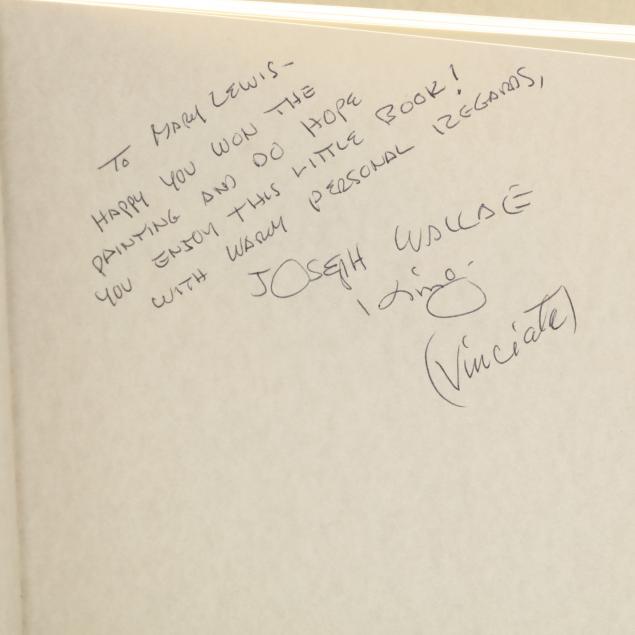 TO MARY LEWIS-
HAPPY YOU WON THE
PAINTING AND DO HOPE
YOU ENJOY THIS LITTLE BOOK!
WITH WARM PERSONAL REGARDS,
JOSEPH WALLACE
King
(Vinciata)